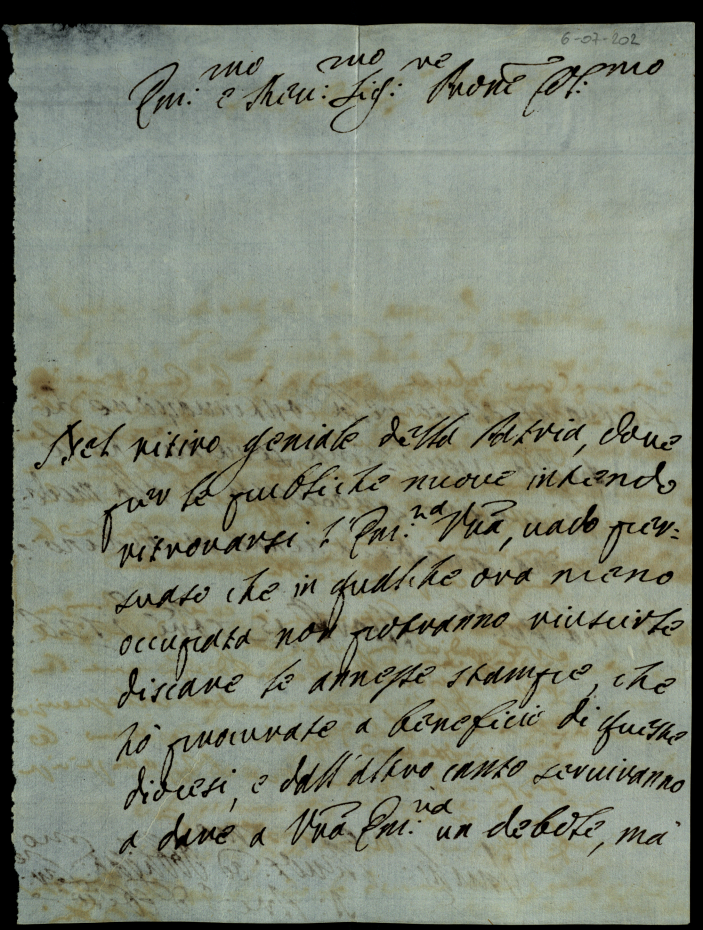 6-07-202
Em:mo e Rev:mo Sig:re Prone Col:mo
Nel ritiro geniale della Patria, dove
per le publiche nuove intendo
ritrovarsi l'Em:za Vrã, vado per=
suaso che in qualche ora meno
occupata non potranno riuscirle
discare le annesse stampe, che
hò procurate a beneficio di queste
diocesi, e dall'altro canto serviranno
a dare a Vrã Em:za un debole, mà